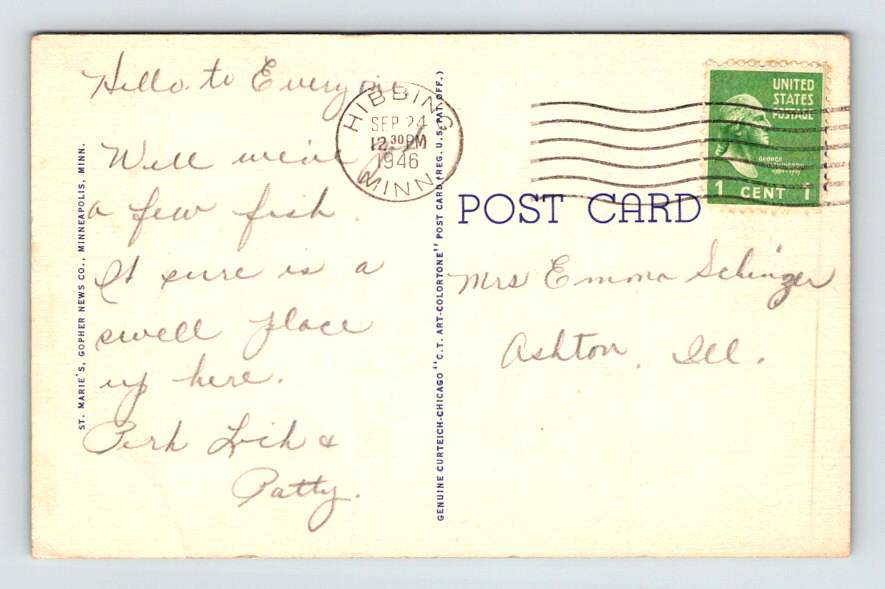 Hello to Everyone
Well we've got
a few fish.
It sure is a
swell place
up here.
&
Patty.
ST. MARIE'S, GOPHER NEWS CO., MINNEAPOLIS, MINN.
GENUINE CURTEICH-CHICAGO "C.T. ART-COLORTONE" POST CARD (REG. U.S. PAT. OFF.)
HIBBING
SEP 24
12 30 PM
1946
MINN.
UNITED
STATES
POSTAGE
GEORGE
WASHINGTON
1 CENT 1
POST CARD
Mrs Emma Schinzer
Ashton, Ill.